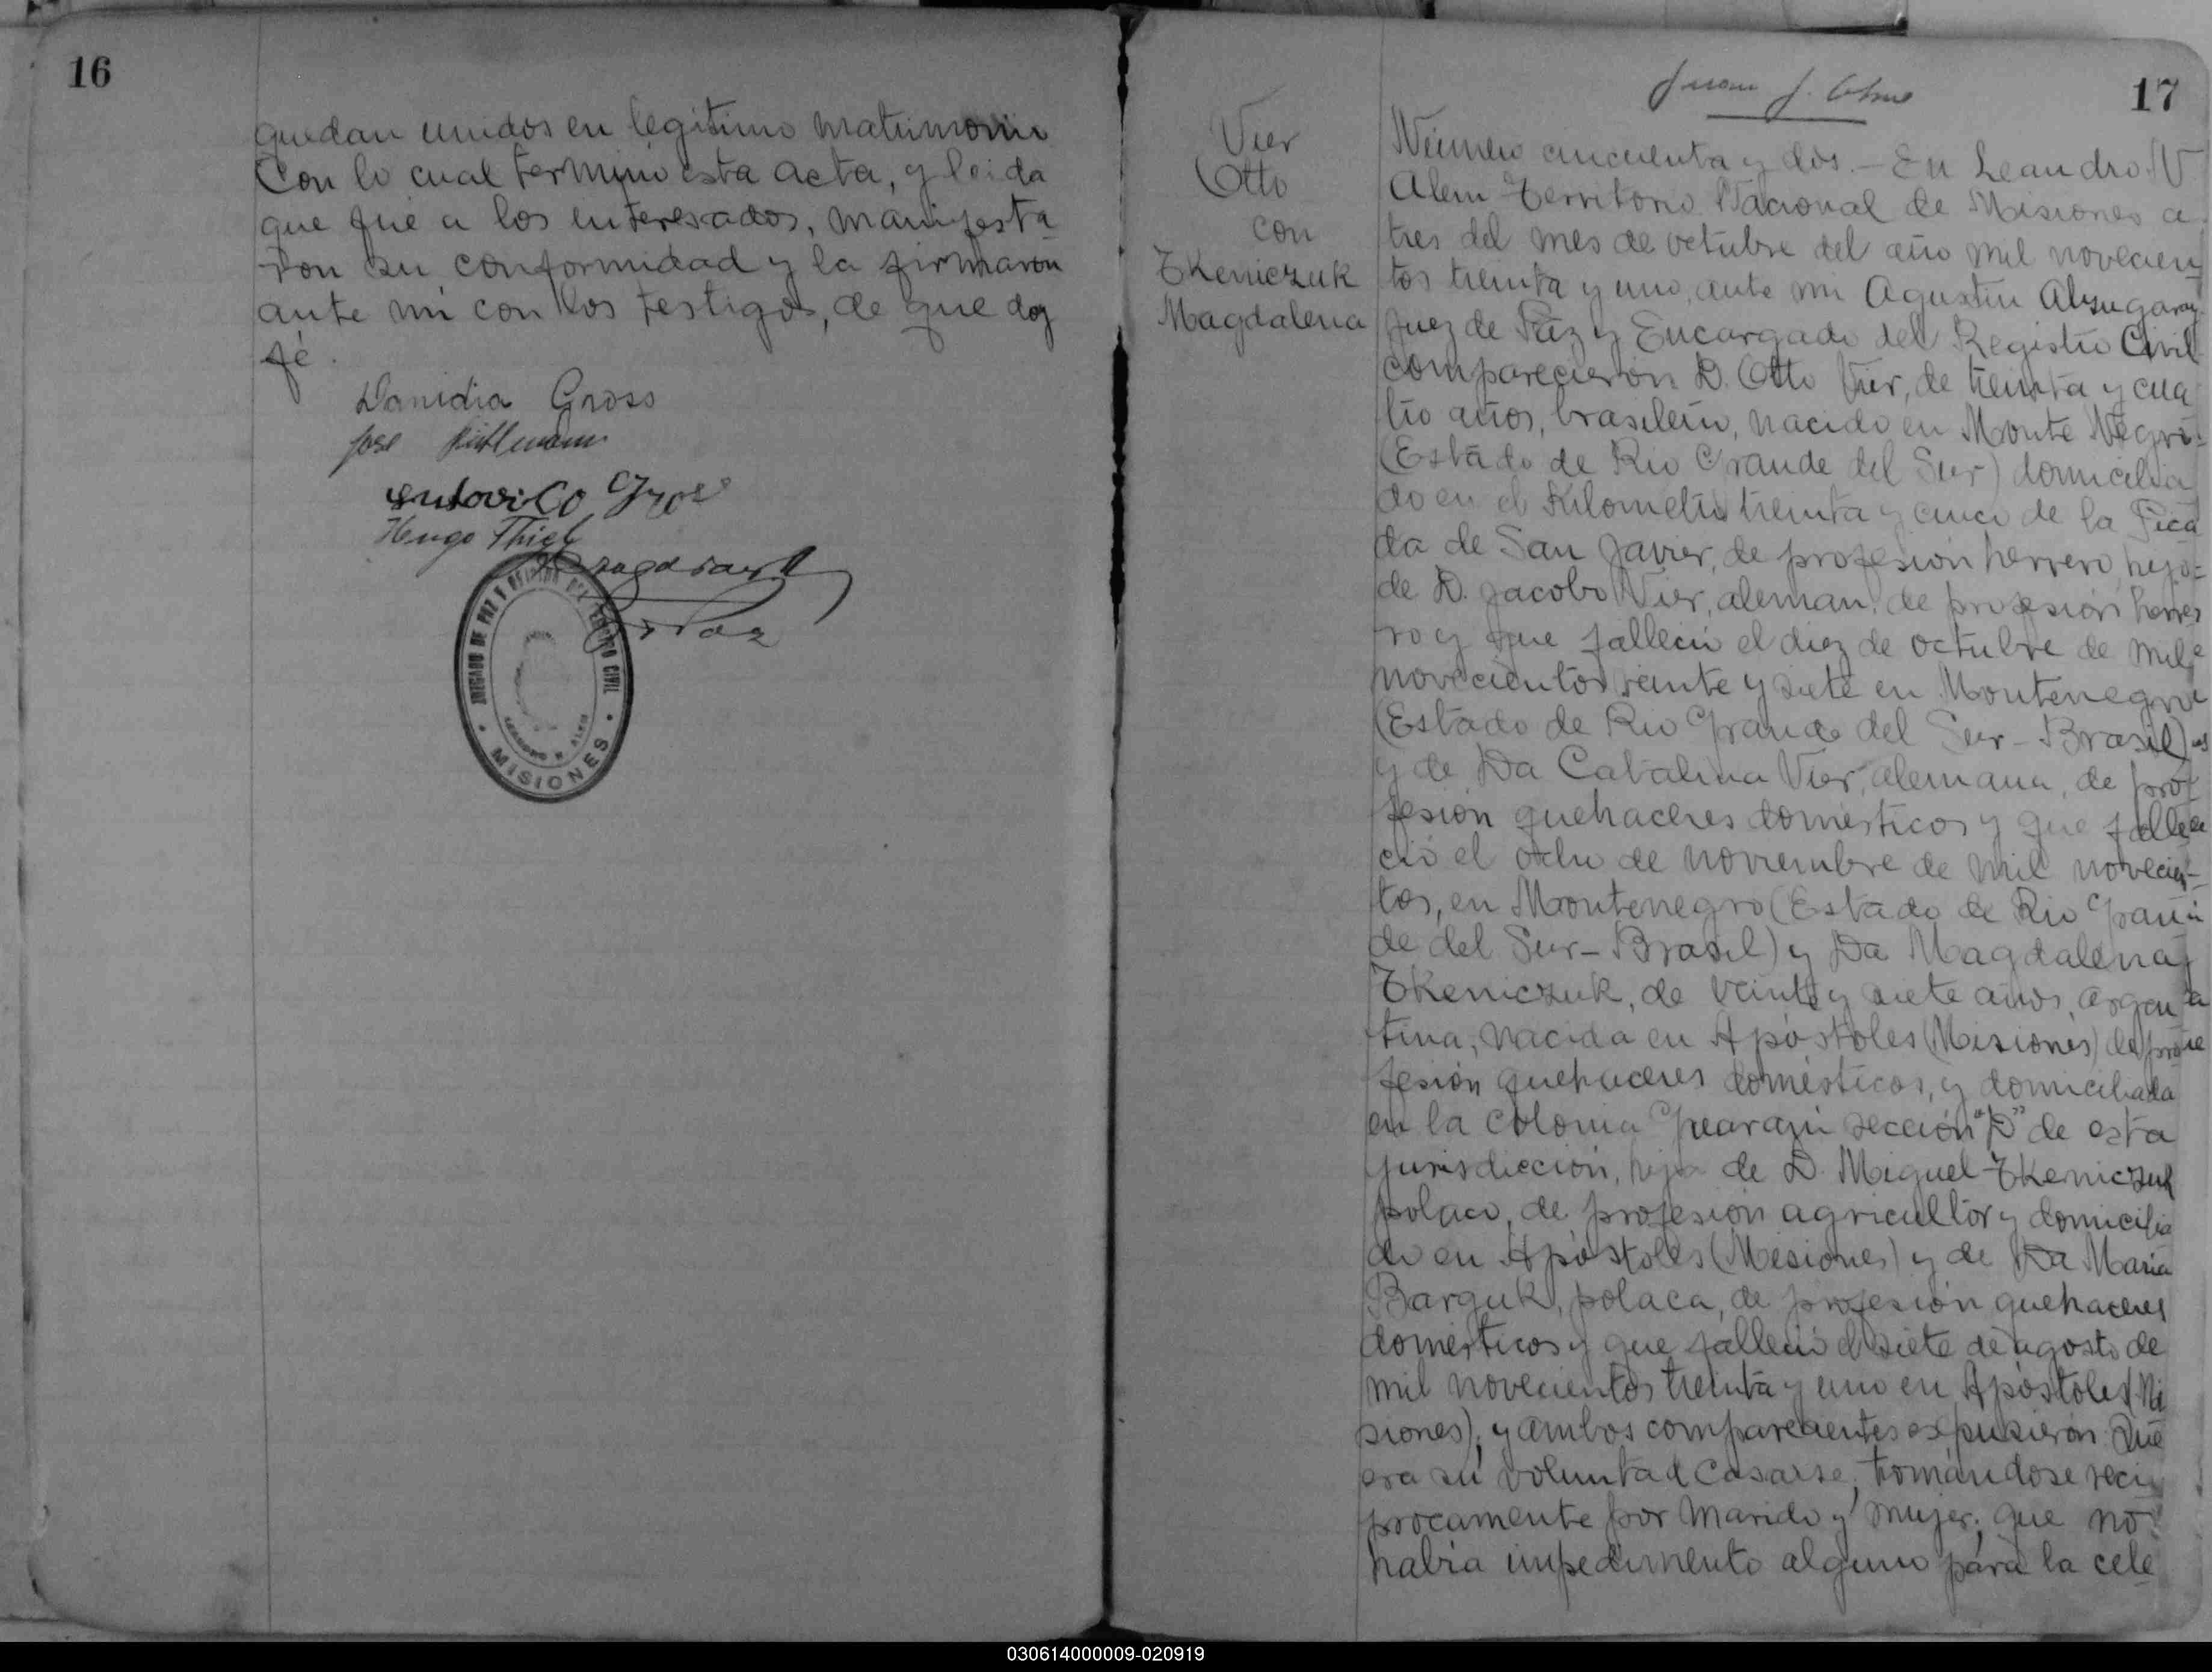 16
quedan unidos en legitimo matrimonio
Con lo cual terminó esta acta, y leida
que fué a los interesados, manifesta
ron su conformidad y la firmaron
ante mi con los testigos, de que doy
fé.
Danidia Gross
José
Ludovico Gros
Hugo Thiel
JUZGADO DE PAZ Y OFICINA DEL REGISTRO CIVIL
LEANDRO N. ALEM
MISIONES
17
Juan J.
Vier
Otto
con
Tkeniczuk
Magdalena
Número cincuenta y dos.- En Leandro N
Alem Territorio Nacional de Misiones a
tres del mes de octubre del año mil novecien
tos treinta y uno, ante mi Agustin Alzugaray
Juez de Páz y Encargado del Registro Civil
comparecieron D. Otto Vier, de treinta y cua
tro años, brasileño, nacido en Monte Negro
(Estado de Rio Grande del Sur) domicilia
do en el Kilometro treinta y cinco de la Pica
da de San Javier, de profesión herrero, hijo
de D. Jacobo Vier, aleman, de profesión herre
ro y que falleció el diez de octubre de mil
novecientos veinte y siete en Montenegro
(Estado de Rio Grande del Sur - Brasil)
y de Da Catalina Vier, alemana, de pro
fesión quehaceres domésticos y que falle
ció el ocho de noviembre de mil novecien-
tos, en Montenegro (Estado de Rio Gran
de del Sur - Brasil) y Da Magdalena
Tkeniczuk, de veinte y siete años, argen
tina, nacida en Apóstoles (Misiones) de pro
fesión quehaceres domésticos, y domiciliada
en la colonia Guaraní sección "D" de esta
jurisdicción, hija de D. Miguel Tkeniczuk
polaco, de profesión agricultor y domicilia
do en Apóstoles (Misiones) y de Da Maria
Barguk, polaca, de profesión quehaceres
domésticos y que falleció el siete de agosto de
mil novecientos treinta y uno en Apóstoles (Mi
siones); y ambos comparecientes expusieron: Que
era su voluntad casarse, tomándose reci
procamente por marido y mujer; que no
habia impedimento alguno para la cele
030614000009-020919